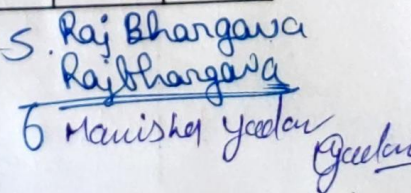 5. Raj Bhargava
Rajbhargava
6 Manisha Yadav
Yadav